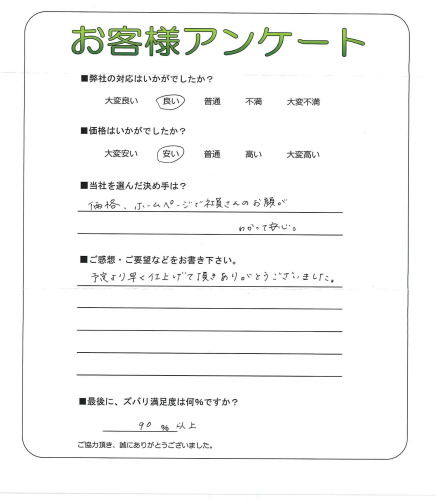 お客様アンケート
■弊社の対応はいかがでしたか？
大変良い 良い 普通 不満 大変不満
■価格はいかがでしたか？
大変安い 安い 普通 高い 大変高い
■当社を選んだ決め手は？
価格、ホームページで社員さんのお顔が
わかって安心。
■ご感想・ご要望などをお書き下さい。
予定より早く仕上げて頂きありがとうございました。
■最後に、ズバリ満足度は何％ですか？
90 ％以上
ご協力頂き、誠にありがとうございました。